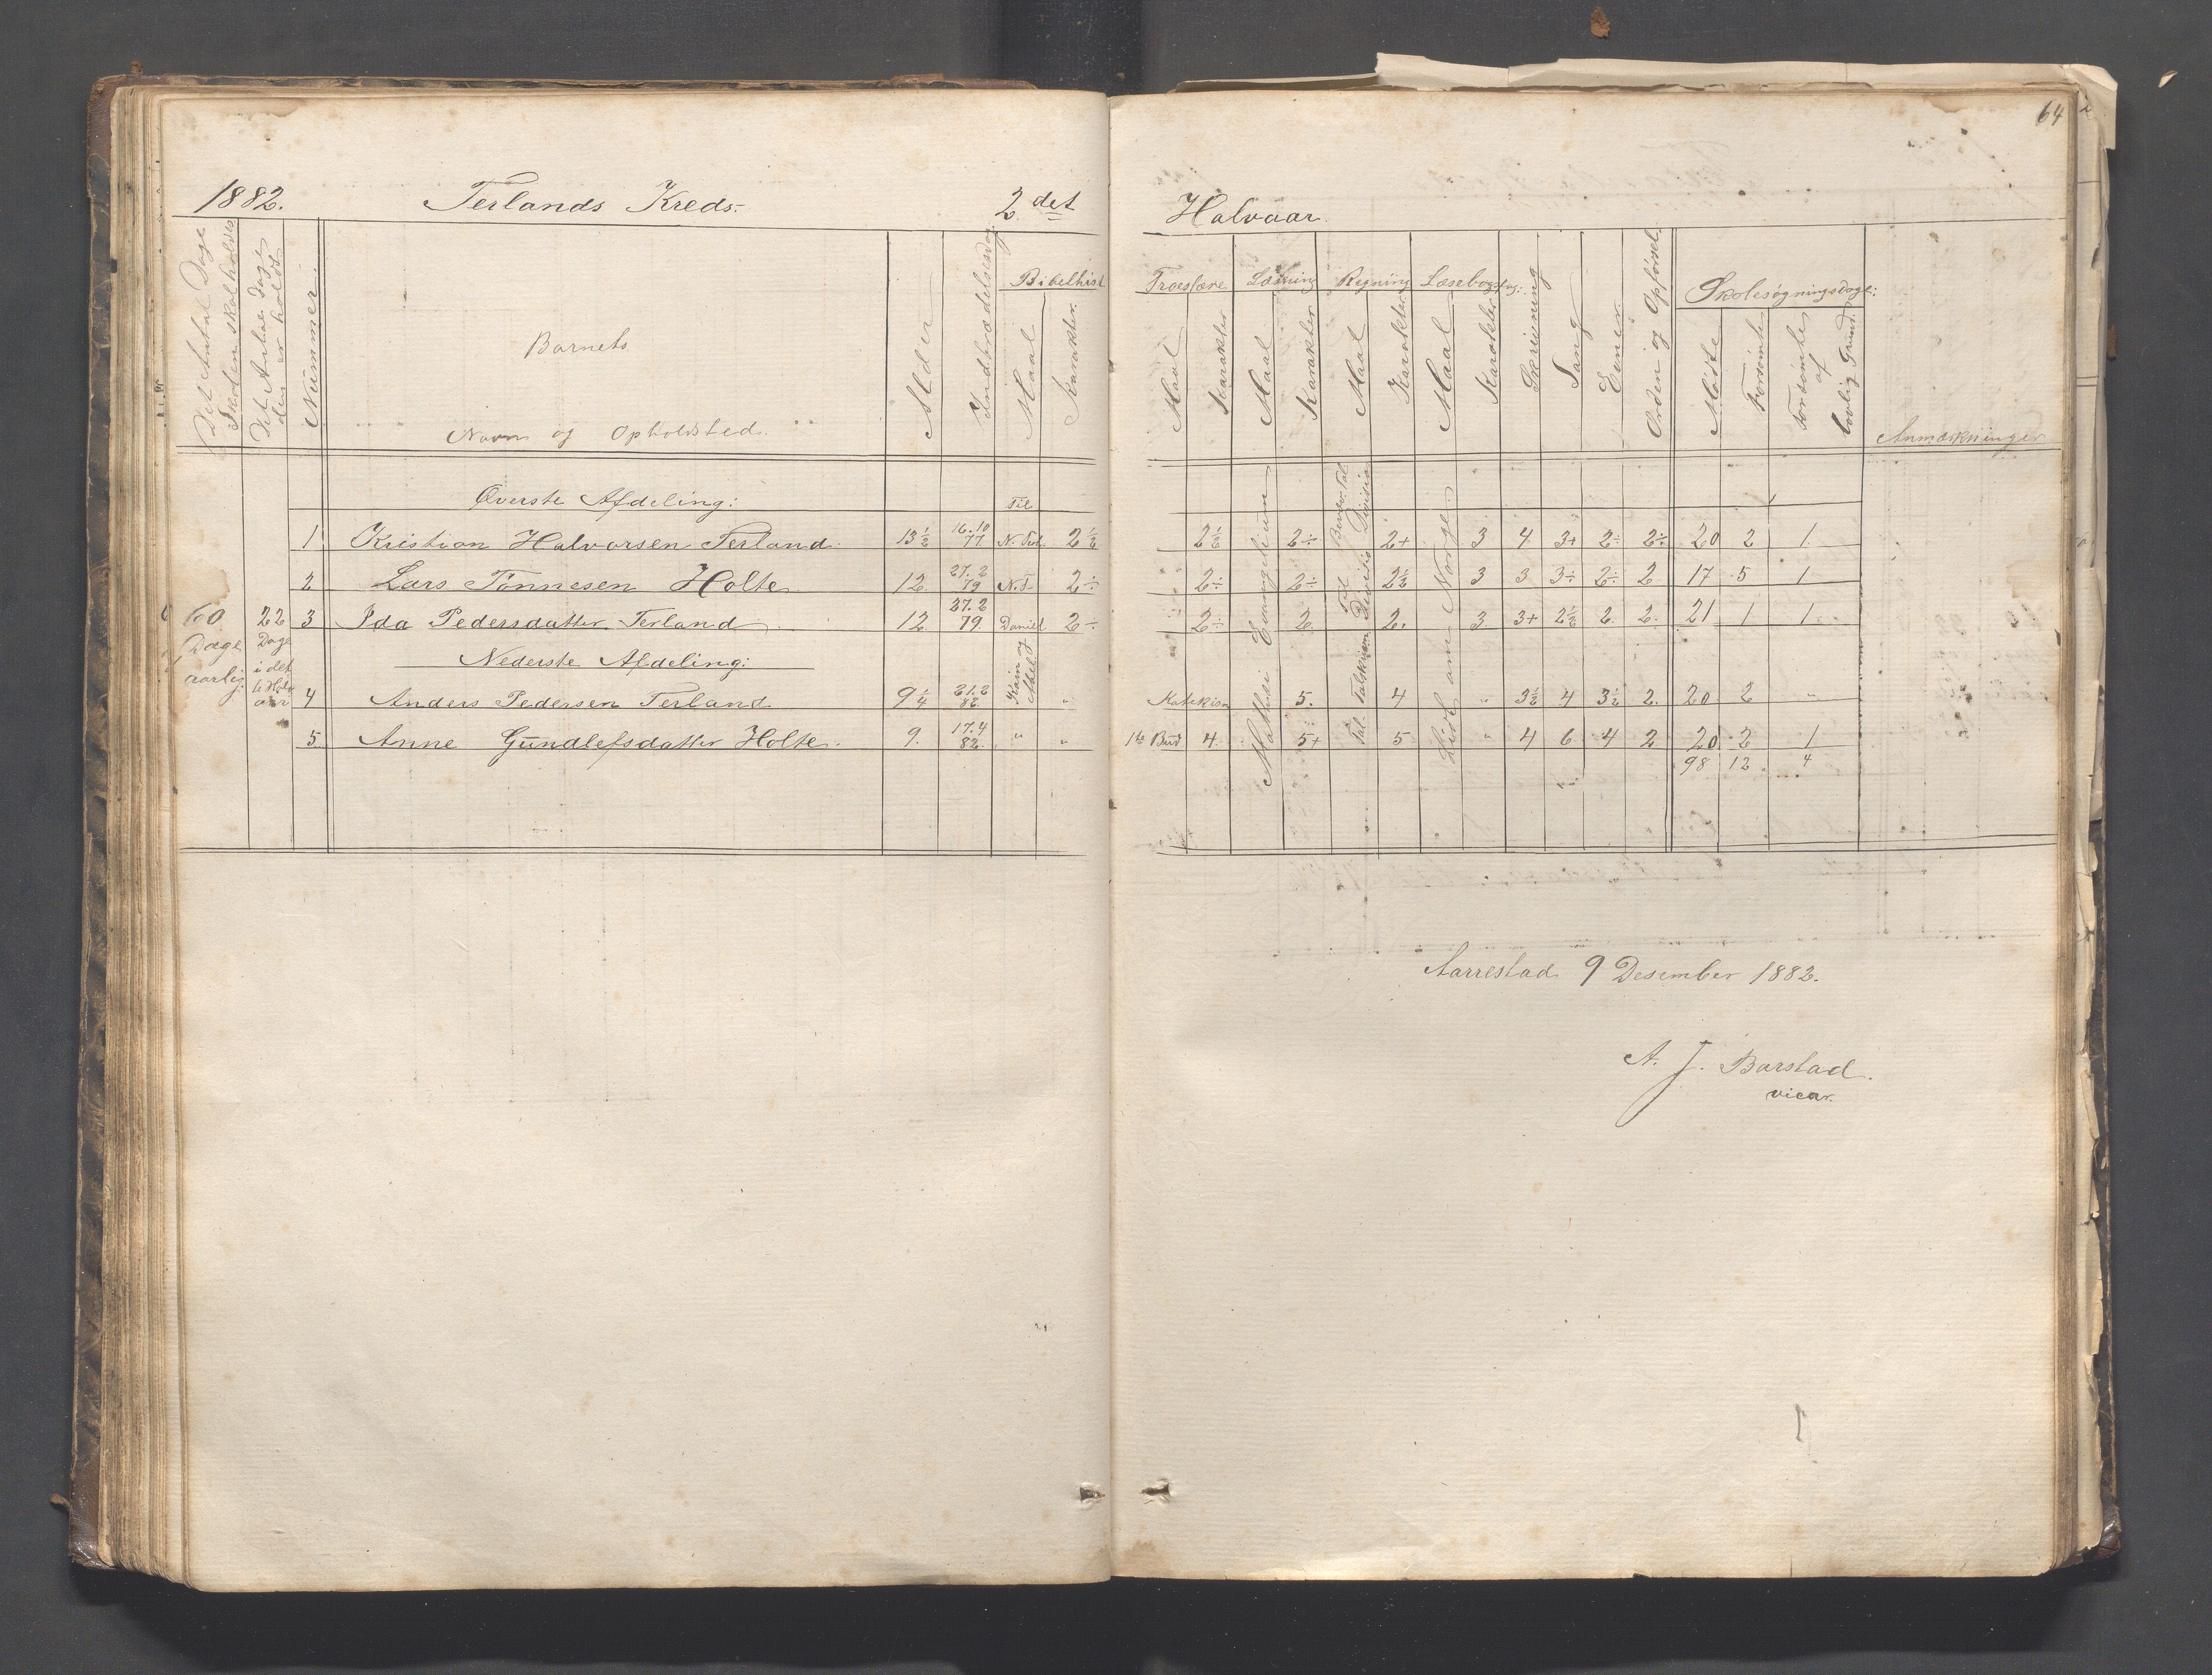 64
1882. Terlands Kreds. 2det Halvaar.
Det Antal Dage Skolen skal holdes
Det Antal Dage den er holdt
Nummer.
Barnets
Navn og Opholdsted.
Alder
Indtrædelsesdag.
Bibelhist
Maal
Karakter.
Troeslære
Maal
Karakter
Læsning
Maal
Karakter
Regning
Maal
Karakter
Læsebogs
Maal
Karakter
Skrivning
Sang
Evner
Orden og Opførsel.
Skolesøgningsdage:
Mødte
Forsømte
Forsømte af lovlig Grund.
Anmærkninger
60 Dage aarlig.
22 Dage i det
Øverste Afdeling:
Til
1 Kristian Halvorsen Terland. 13½ 16.10 77 N. Test. 2½ 2½ 2÷ 2+ 3 4 3+ 2÷ 2÷ 20 2 1
2 Lars Tønnesen Holte 12 27.2 79 N.T. 2÷ 2÷ 2÷ 2½ 3 3 3÷ 2÷ 2 17 5 1
3 Ida Pedersdatter Terland 12 27.2 79. Daniel 2÷ 2÷ 2. 2. 3. 3+ 2½ 2. 2. 21 1 1
Nederste Afdeling:
4 Anders Pedersen Terland 9¼ 21.2 82. Kain og Abel " 5. 4 " 3½ 4 3½ 2. 20 2 "
5. Anne Gundlefsdatter Holte. 9. 17.4 82. " " 1te Bud 4. 5+ 5 " 4 6 4 2 20 2 1
98 12 4
Matthæi Evangelium
Lidt om Norge
Aarrestad 9 Desember 1882.
A. J. Barstad.
vicar.